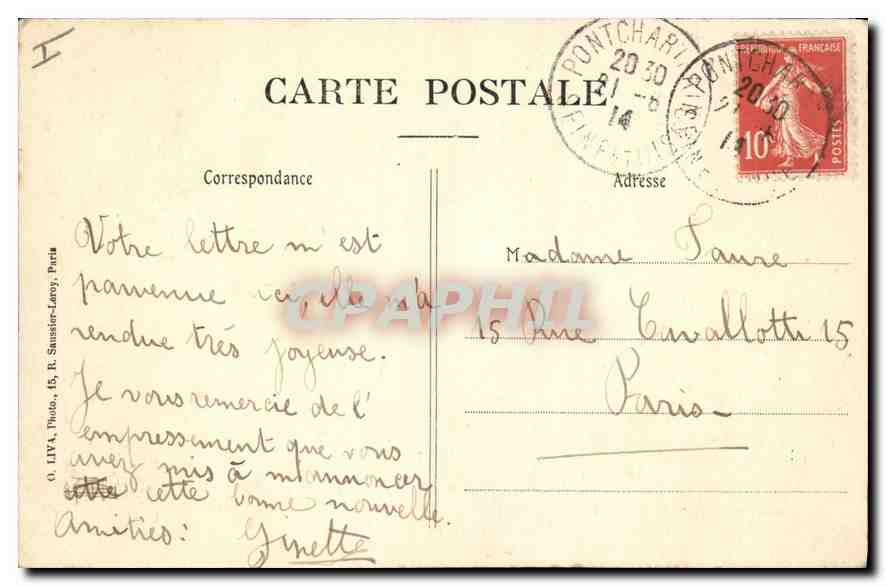 I
CARTE POSTALE
PONTCHARTRAIN
20 30
21 - 6
14
SEINE-ET-OISE
PONTCHAR
20 30
14
SEINE
REPUBLIQUE FRANÇAISE
10
POSTES
Correspondance
Adresse
Votre lettre m'est
parvenue ici, elle m'a
rendue très joyeuse.
Je vous remercie de l'
empressement que vous
avez mis à m'annoncer
cette cette bonne nouvelle.
Amitiés: Ginette
Madame Faure
15 Rue Cavallotti 15
Paris
O. LIVA, Photo., 15, R. Saussier-Leroy, Paris
CPAPHIL